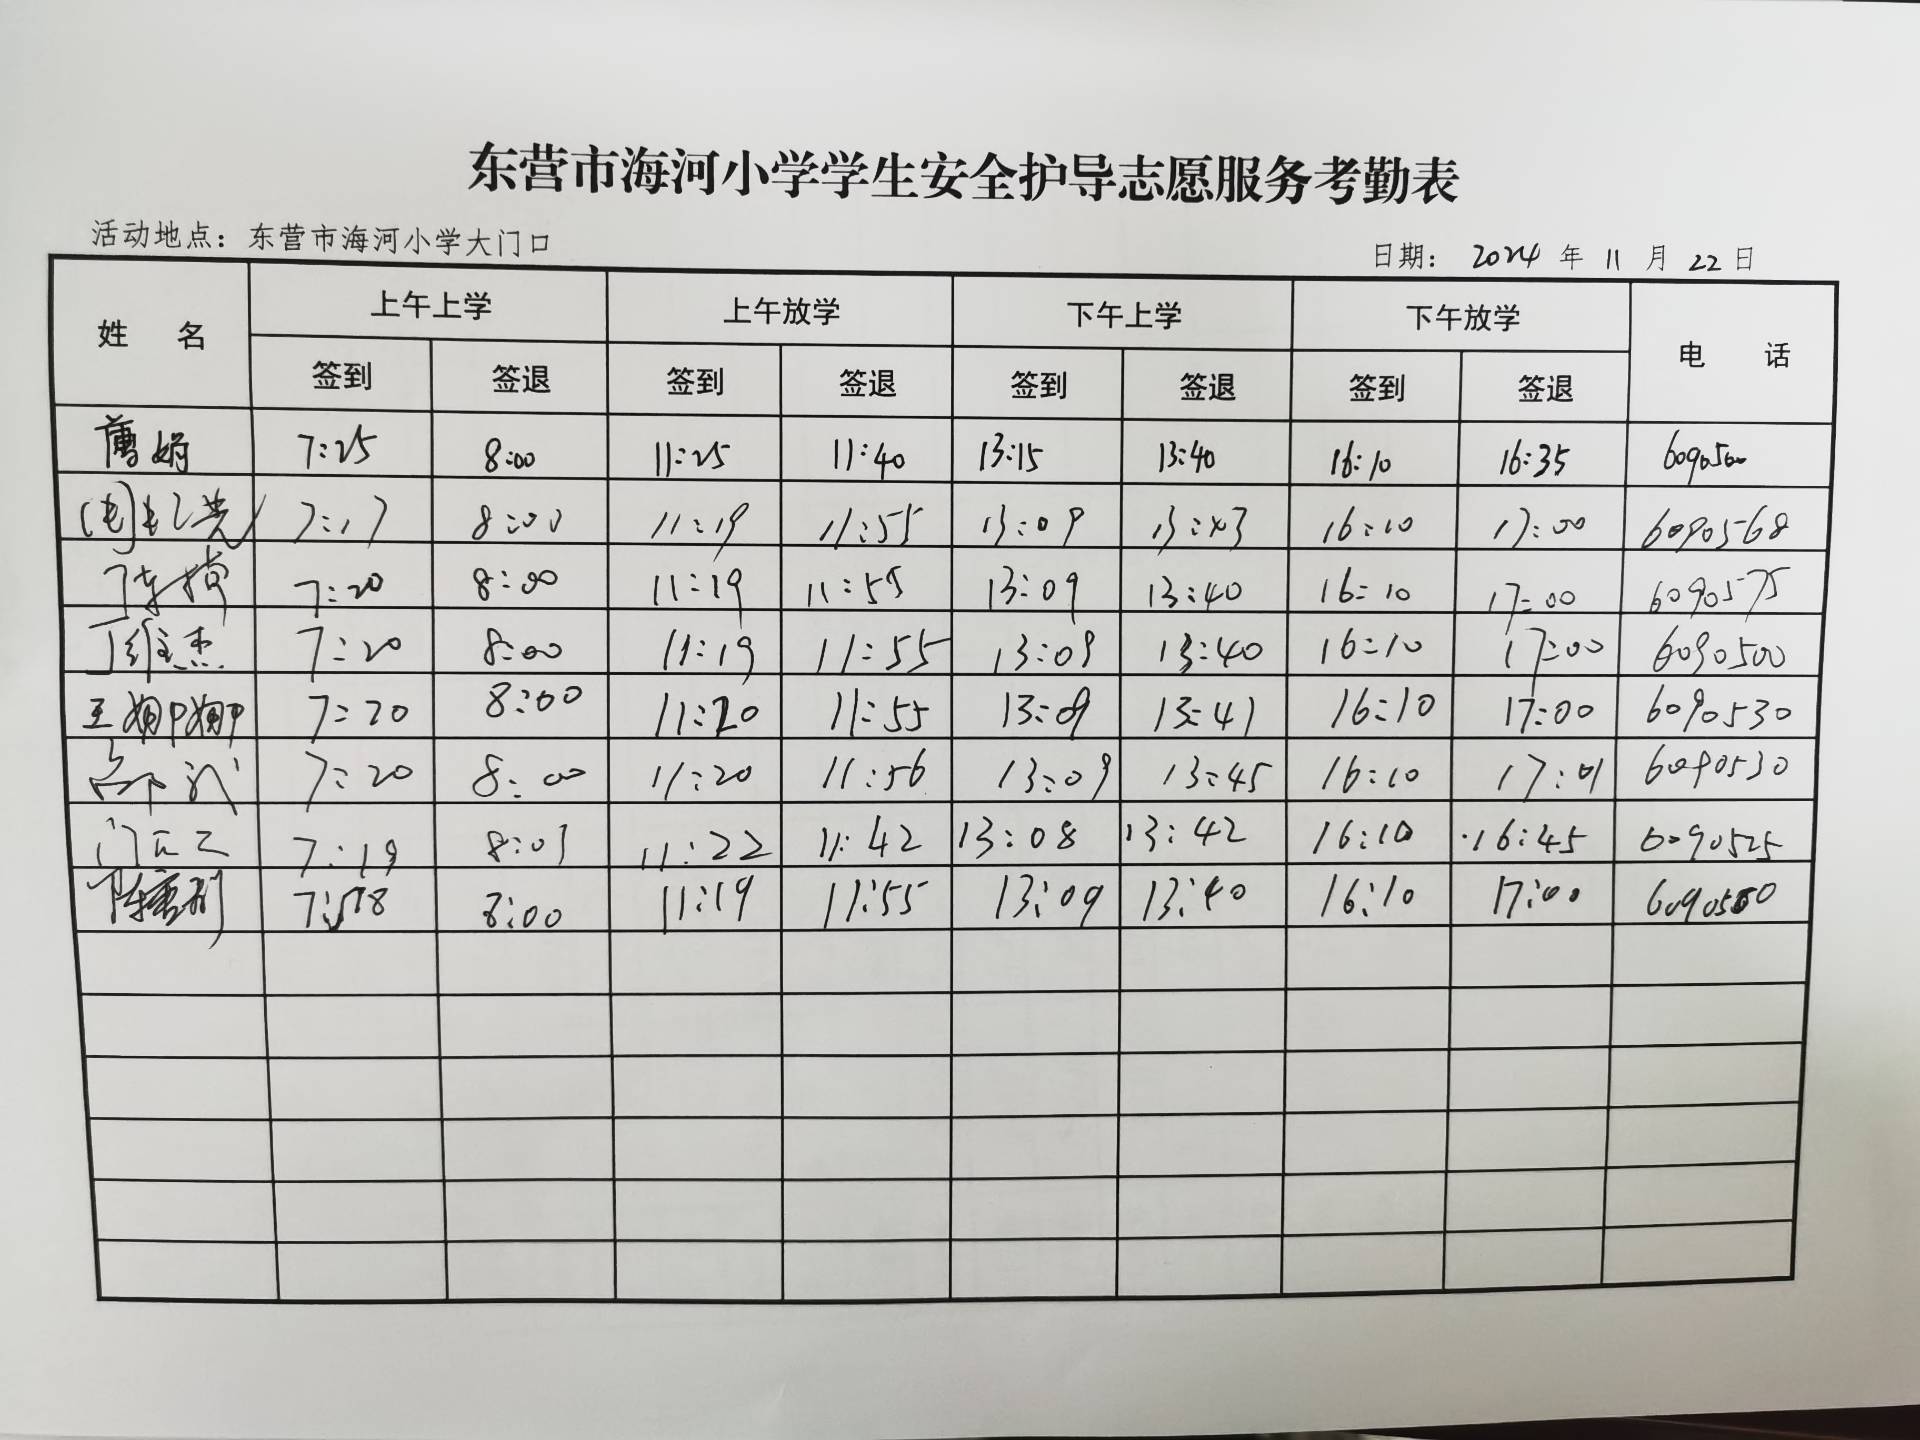 东营市海河小学学生安全护导志愿服务考勤表
活动地点：东营市海河小学大门口
日期： 2024 年 11 月 22 日
姓 名 上午上学 上午放学 下午上学 下午放学 电 话
签到 签退 签到 签退 签到 签退 签到 签退
7:25 8:00 11:25 11:40 13:15 13:40 16:10 16:35 6090500
7:17 8:00 11:19 11:55 13:09 13:43 16:10 17:00 6090568
7:20 8:00 11:19 11:55 13:09 13:40 16:10 17:00 6090575
丁维杰 7:20 8:00 11:19 11:55 13:09 13:40 16:10 17:00 6090500
王姗姗 7:20 8:00 11:20 11:55 13:09 13:41 16:10 17:00 6090530
7:20 8:00 11:20 11:56 13:09 13:45 16:10 17:01 6090530
7:19 8:01 11:22 11:42 13:08 13:42 16:10 16:45 6090525
8:00 11:19 11:55 13:09 13:40 16:10 17:00